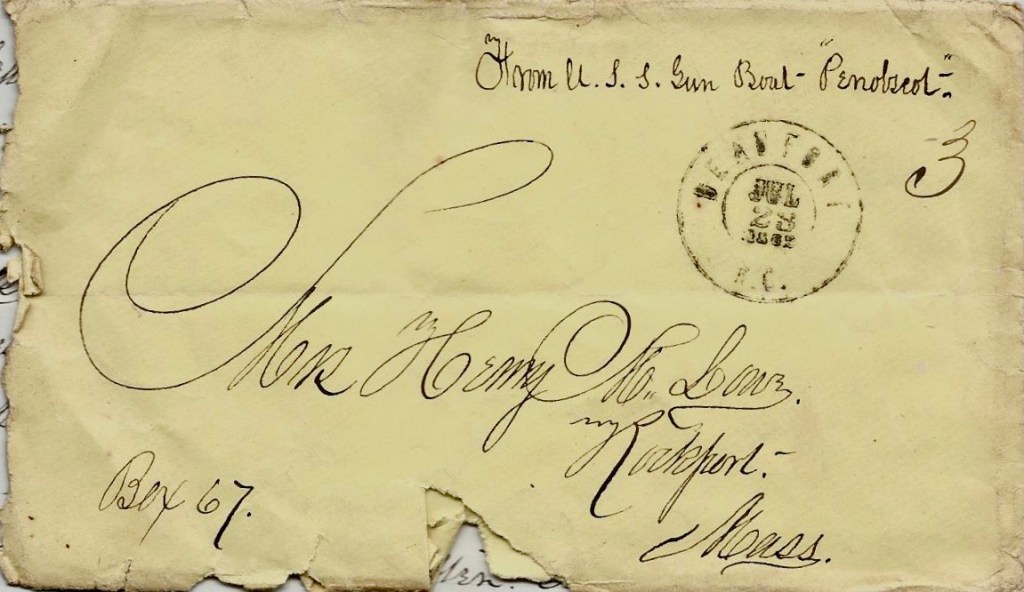 From U. S. S. Gun Boat "Penobscot"
3
BEAUFORT
JUL
28
1862
N.C.
Mrs Henry M. Lowe.
Rockport.
Box 67.
Mass.